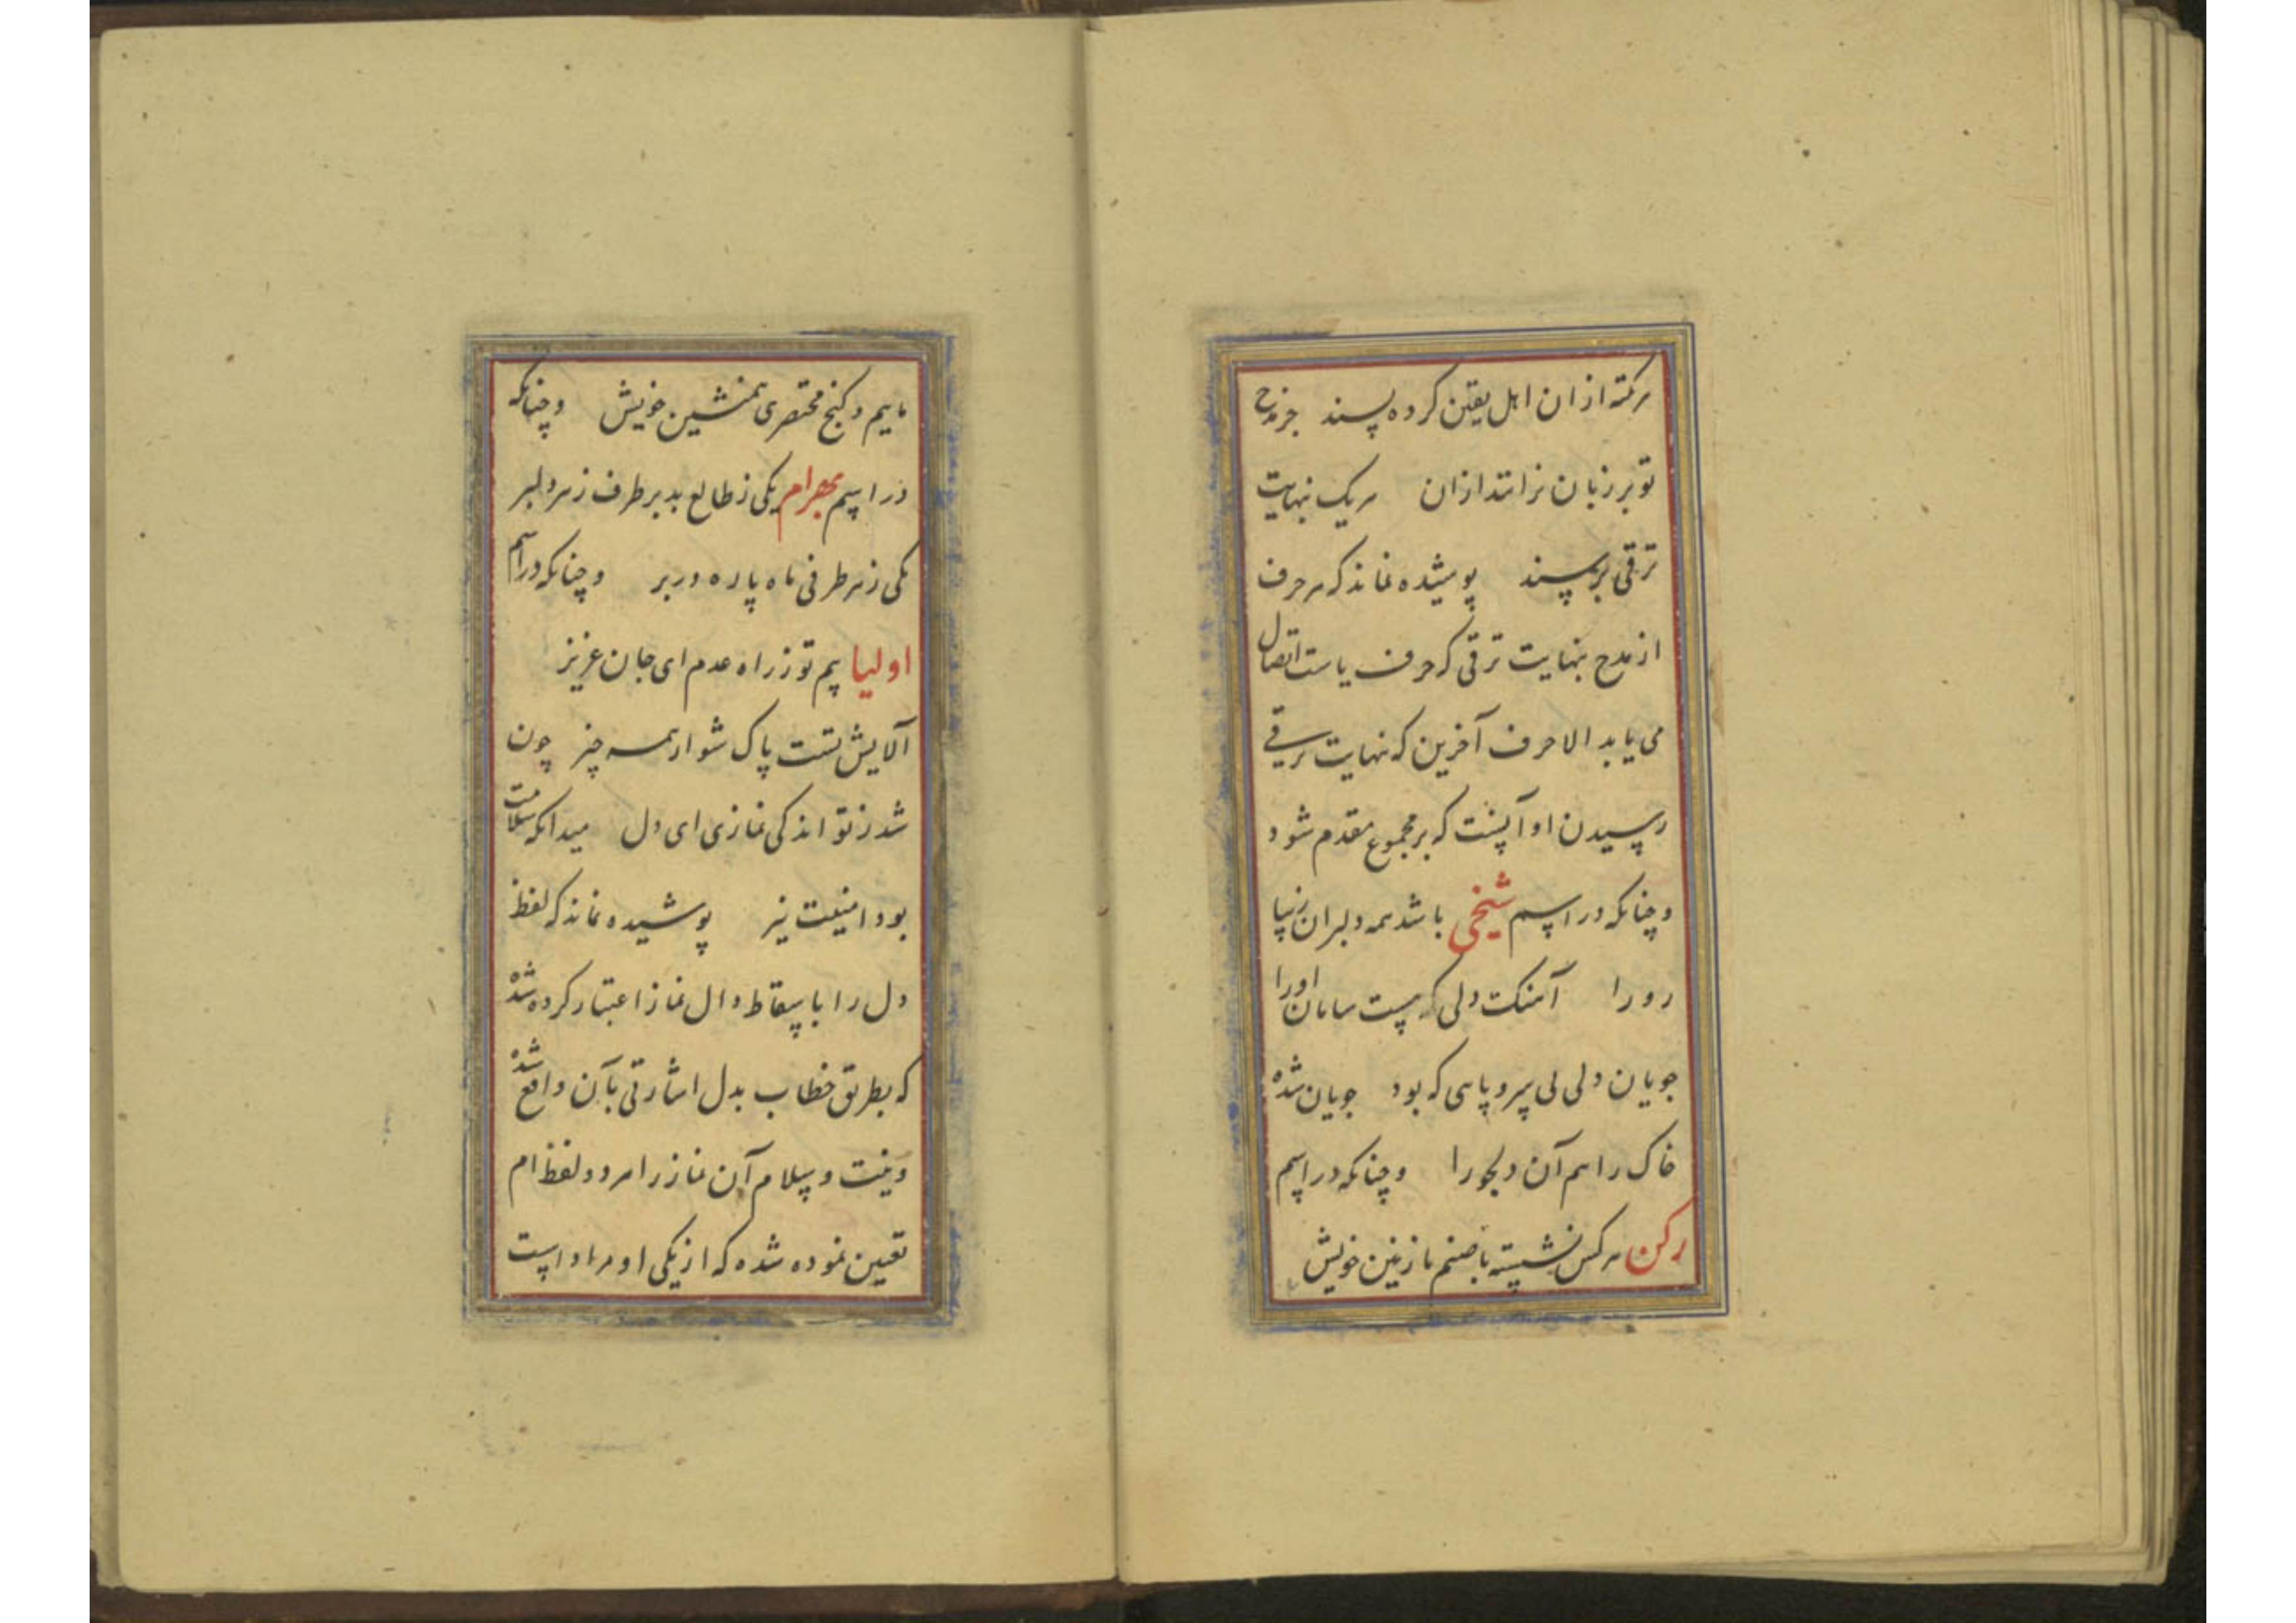 هر نکته از ان اهل یقین کرده پسند جز مدح
تو بر زبان نرانند ازان هر یک نهایت
ترقی برسند پوشیده نماند که هر حرف
از مدح بنهایت ترقی که حرف یاست اتصال
می یابد الا حرف آخرین که نهایت ترقی
رسیدن او آنست که بر مجموع مقدم شود
و چنانکه در اسم شیخی باشد همه دلبران زیبا
رو را آهنگ دلی که هست سامان او را
جویان دلی بی سر و پاهی که بود جویان شده
خاک راهم آن دلجو را و چنانکه در اسم
رکن هر کس نشسته با صنم نازنین خویش
ماییم و کنج مختصری همنشین خویش و چنانکه
در اسم بهرام یکی ز طالع بد بر طرف ز هر دلبر
یکی ز هر طرفی ماه پاره در بر و چنانکه در اسم
اولیا هم تو ز راه عدم ای جان عزیز
آلایش تست پاک شو از همه چیز چون
شد ز تو اندکی نمازی ای دل میدانکه سلامت
بود امنیت نیز پوشیده نماند که لفظ
دل را باسقاط دال نماز اعتبار کرده شده
که بطریق خطاب بدل اشارتی بآن واقع شده
و نیت و سلام آن نماز را هر دو لفظ ام
تعیین نموده شده که از یکی او مراد است